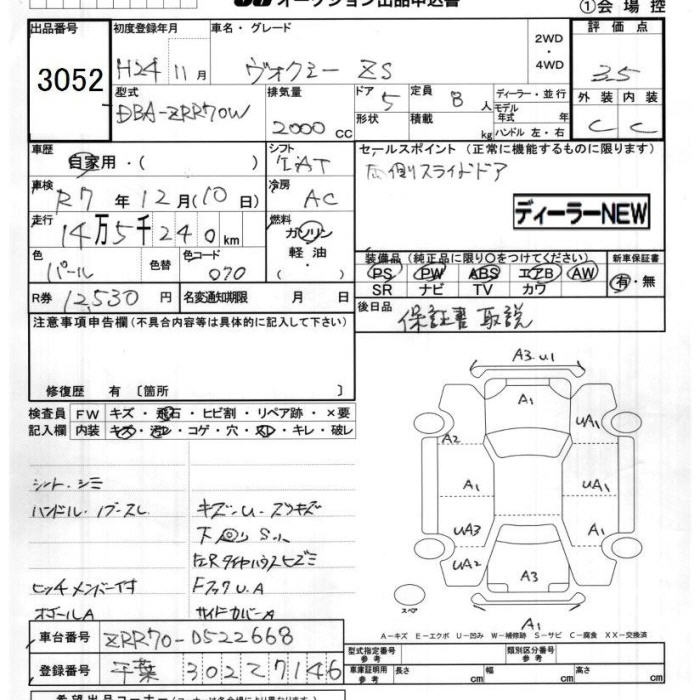 オークション出品申込書
①会場控
出品番号 3052
初度登録年月 H24 11月
車名・グレード ヴォクシー ZS
2WD・4WD
評価点 3.5
型式 DBA-ZRR70W
排気量 2000 CC
ドア 5 形状
定員 8 人 積載 kg
ディーラー・並行
モデル年式 年
ハンドル 左・右
外装 C 内装 C
車歴 自家用・( )
シフト IAT
セールスポイント (正常に機能するものに限ります)
両側スライドドア
車検 R7年12月(10日)
冷房 AC
ディーラーNEW
走行 14万5千240km
燃料 ガソリン 軽油 ・( )
色 パール 色替 色コード 070
装備品(純正品に限り○をつけてください) 新車保証書
PS PW ABS エアB AW 有・無
SR ナビ TV カワ
R券 12,530円 名変通知期限 月 日
後日品 保証書 取説
注意事項申告欄(不具合内容等は具体的に記入して下さい)
修復歴 有 〔箇所 〕
検査員 FW キズ・飛石・ヒビ割・リペア跡・×要
記入欄 内装 キズ・汚レ・コゲ・穴・スレ・キレ・破レ
シート・シミ
ハンドル・ノブスレ
キズ・U・スリキズ
下回りS
左Rタイヤハウスヒズミ
ヒッチメンバー付
FフックU.A
ボゴールA
サイドカバーA
A3.U1
A1
UA1
A2
A1
UA1
UA3
A1
UA2
A3
A1
スペア
A-キズ E-エクボ U-凹み W-補修跡 S-サビ C-腐食 XX-交換済
車台番号 ZRR70-0522668
登録番号 千葉 302 7146
型式指定番号 参考 類別区分番号 参考
車庫証明用 参考 長さ cm 幅 cm 高さ cm
希望出品コーナー